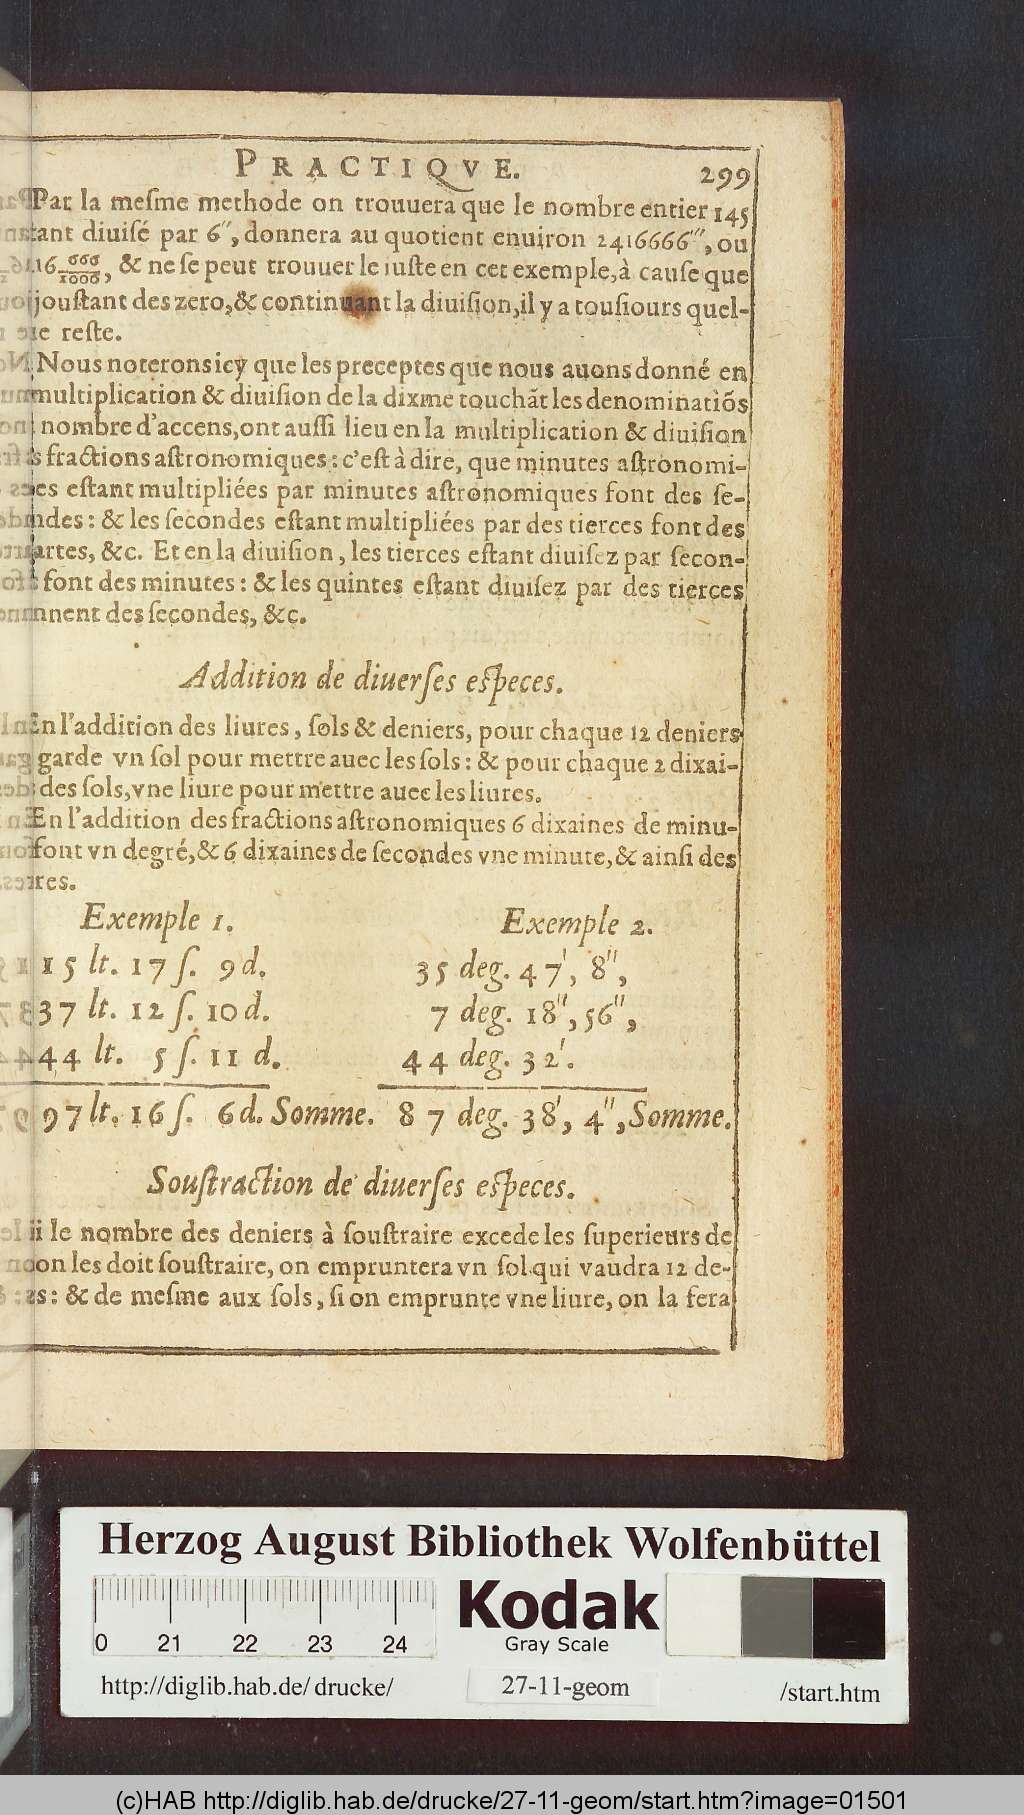 PRACTIQVE. 299
Par la meſme methode on trouuera que le nombre entier 145
ant diuiſé par 6″, donnera au quotient enuiron 2416666‴, ou
16 666/1000, & ne ſe peut trouuer le iuſte en cet exemple, à cauſe que
jouſtant des zero, & continuant la diuiſion, il y a touſiours quel-
e reſte.
Nous noterons icy que les preceptes que nous auons donné en
multiplication & diuiſion de la dixme touchãt les denominatiõs
nombre d'accens, ont auſſi lieu en la multiplication & diuiſion
s fractions aſtronomiques : c'eſt à dire, que minutes aſtronomi-
es eſtant multipliées par minutes aſtronomiques font des ſe-
ndes : & les ſecondes eſtant multipliées par des tierces font des
artes, &c. Et en la diuiſion, les tierces eſtant diuiſez par ſecon-
font des minutes : & les quintes eſtant diuiſez par des tierces
nnent des ſecondes, &c.
Addition de diuerſes eſpeces.
En l'addition des liures, ſols & deniers, pour chaque 12 deniers
garde vn ſol pour mettre auec les ſols : & pour chaque 2 dixai-
des ſols, vne liure pour mettre auec les liures.
En l'addition des fractions aſtronomiques 6 dixaines de minu-
font vn degré, & 6 dixaines de ſecondes vne minute, & ainſi des
res.
Exemple 1. Exemple 2.
15 lt. 17 ſ. 9 d. 35 deg. 47′, 8″,
37 lt. 12 ſ. 10 d. 7 deg. 18″, 56″,
44 lt. 5 ſ. 11 d. 44 deg. 32′.
97 lt. 16 ſ. 6 d. Somme. 87 deg. 38′, 4″, Somme.
Souſtraction de diuerſes eſpeces.
i le nombre des deniers à ſouſtraire excede les ſuperieurs de
on les doit ſouſtraire, on empruntera vn ſol qui vaudra 12 de-
s : & de meſme aux ſols, ſi on emprunte vne liure, on la fera
Herzog August Bibliothek Wolfenbüttel
0 21 22 23 24
Kodak
Gray Scale
http://diglib.hab.de/ drucke/ 27-11-geom /start.htm
(c)HAB http://diglib.hab.de/drucke/27-11-geom/start.htm?image=01501